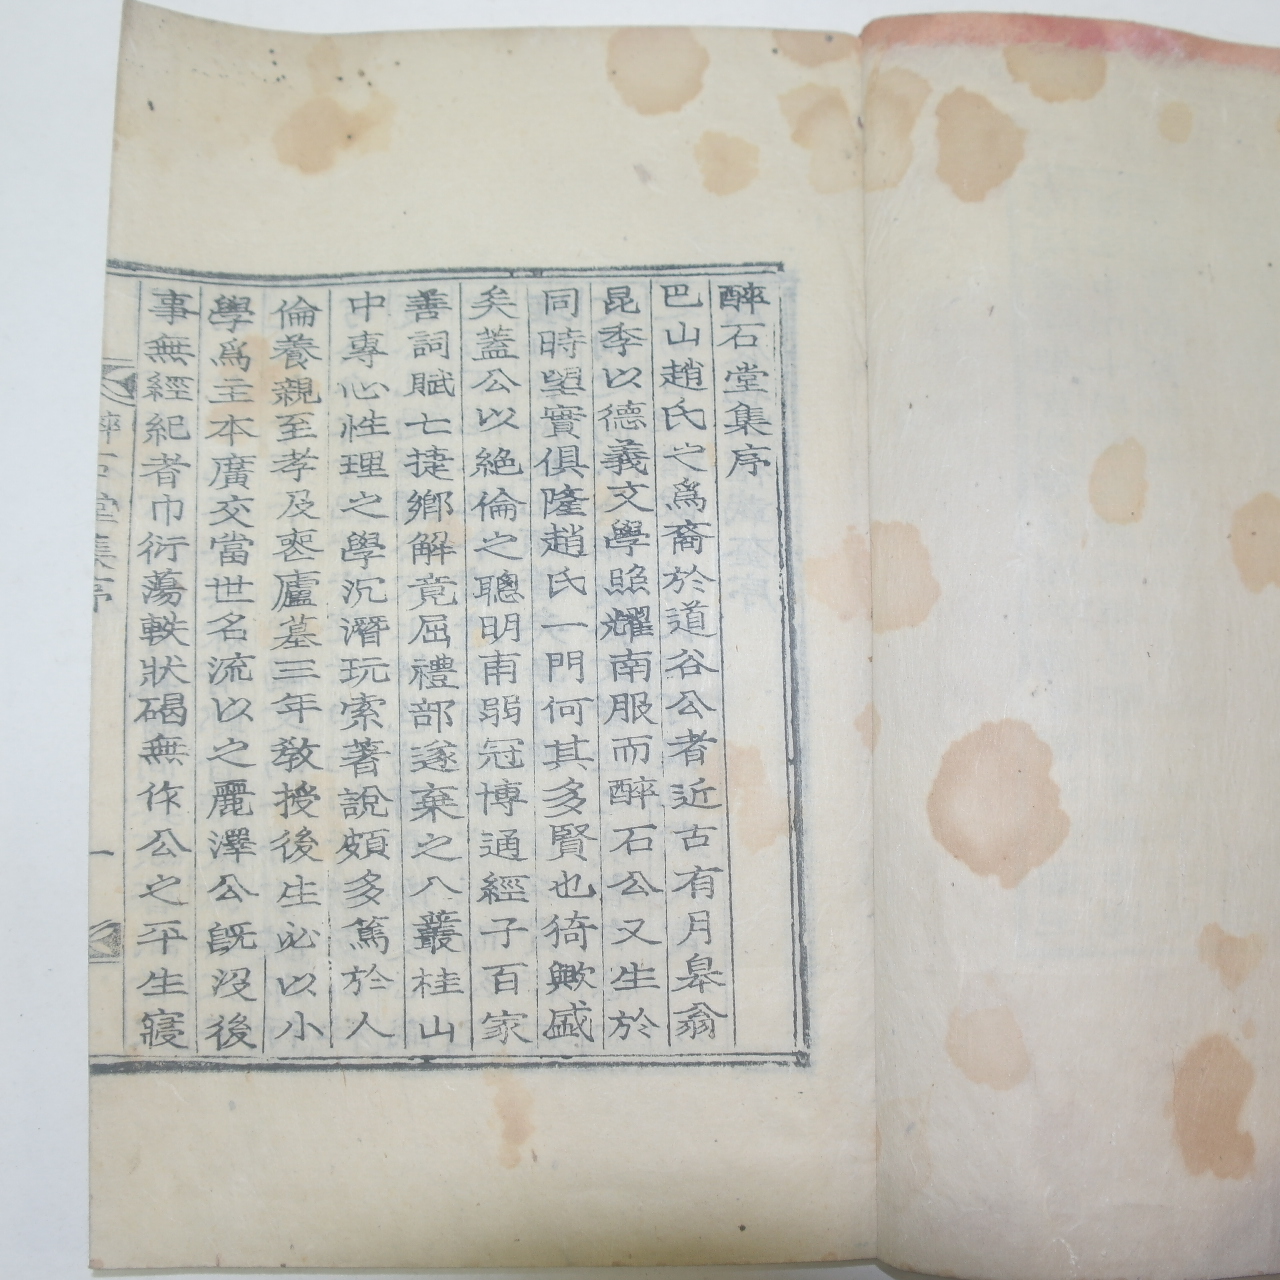 醉石堂集序
巴山趙氏之爲裔於道谷公者近古有月皋翁
昆季以德義文學照耀南服而醉石公又生於
同時望實俱隆趙氏一門何其多賢也猗歟盛
矣蓋公以絶倫之聰明甫弱冠博通經子百家
善詞賦七捷鄉解竟屈禮部遂棄之入叢桂山
中專心性理之學沉潛玩索著說頗多篤於人
倫養親至孝及喪廬墓三年教授後生必以小
學爲主本廣交當世名流以之麗澤公旣沒後
事無經紀者巾衍蕩軼狀碣無作公之平生寢
醉石堂集序 一